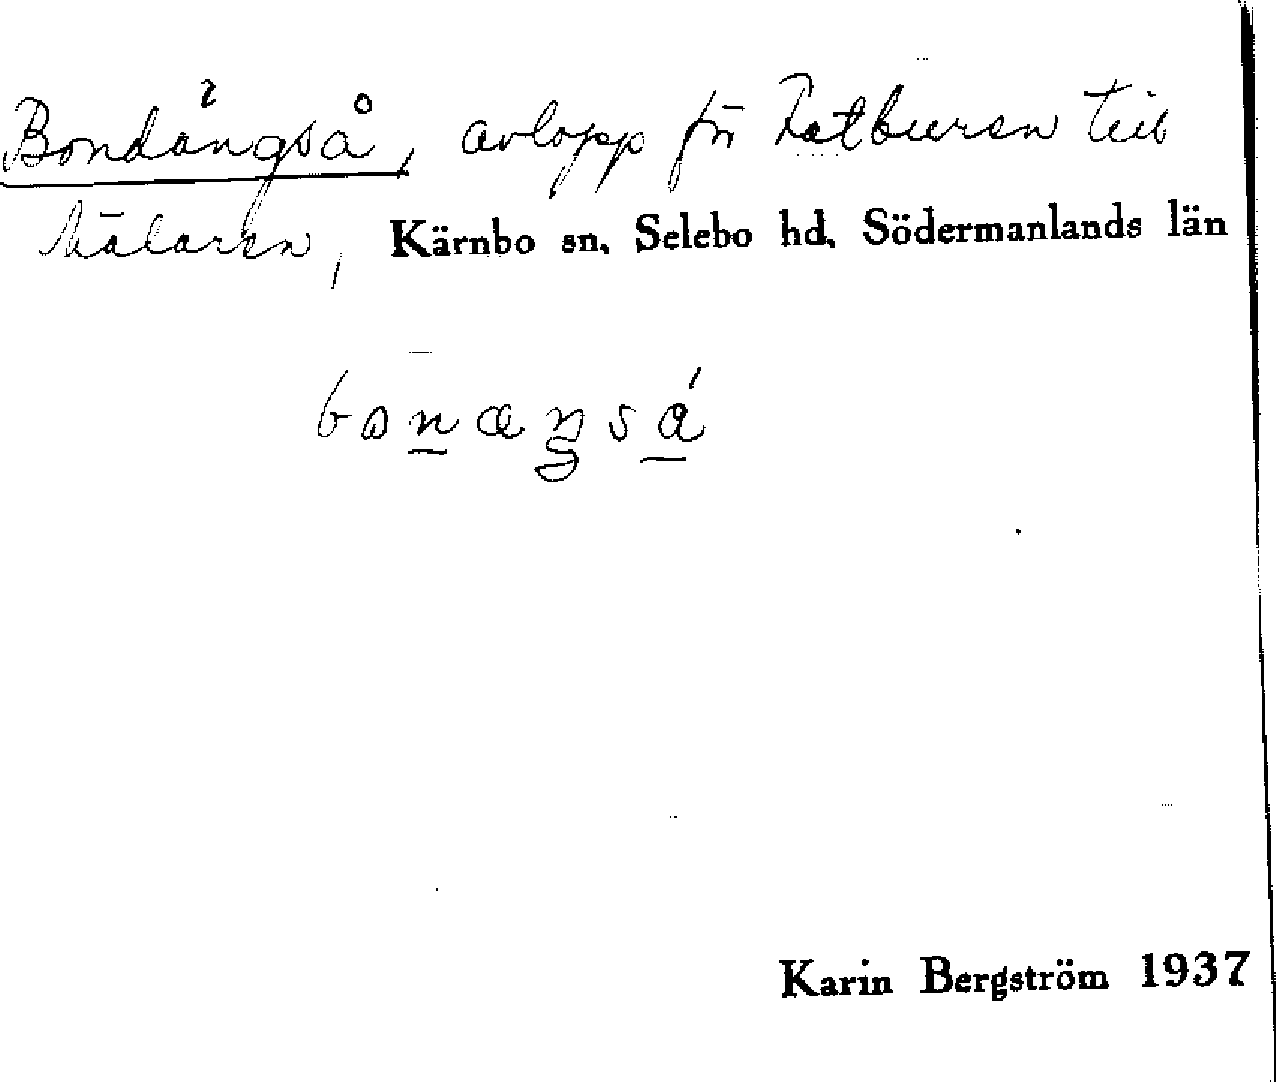 Bondängså, avlopp för Katbursn till
Mälaren, Kärnbo sn, Selebo hd. Södermanlands län
Karin Bergström 1937